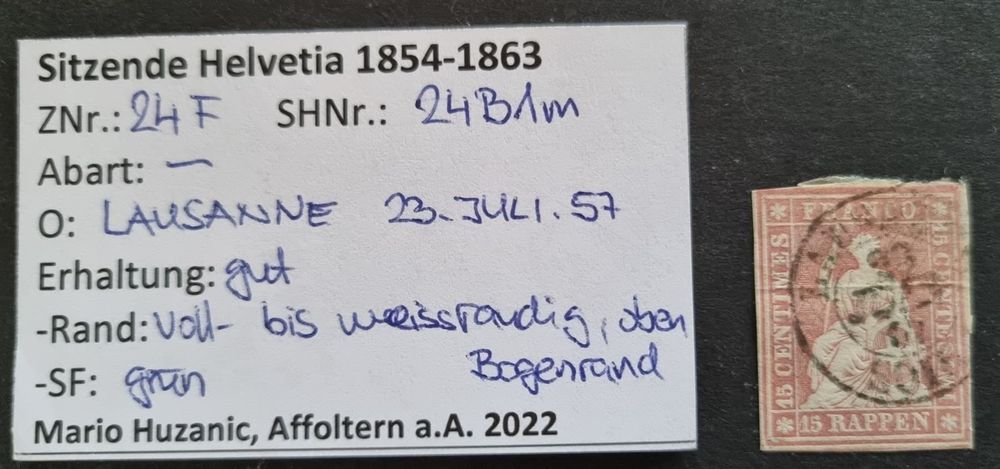 Sitzende Helvetia 1854-1863
ZNr.: 24 F SHNr.: 24B1m
Abart: —
O: LAUSANNE 23. JULI. 57
Erhaltung: gut
-Rand: voll- bis weissrandig, oben
Bogenrand
-SF: grün
Mario Huzanic, Affoltern a.A. 2022
FRANCO
15 CENTIMES
15 CENTESIMI
15 RAPPEN